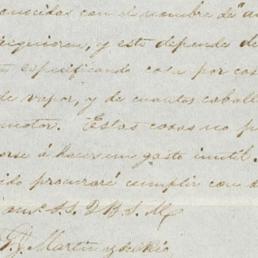 conocidas con el nombre de "a
requieren, y esto depende de
especificando cosa por cos
de vapor, y de cuantos caball
motor. Estas cosas no pu
erse á hacer un gasto inutil.
ido procuraré cumplir con s
S. S. Q. B. S. M.
J. Martin